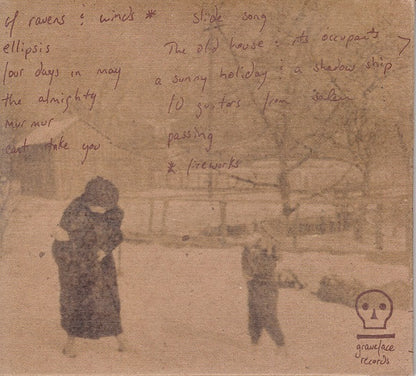 of ravens & winds *
ellipsis
four days in may
the almighty
mur mur
cant take you
slide song
The old house & its occupants
a sunny holiday & a shadow ship
10 guitars from salem
passing
* fireworks
graveface
records